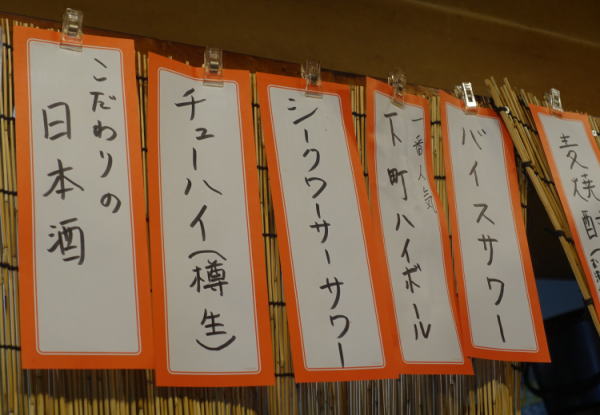 こだわりの
日本酒
チューハイ(樽生)
シークワーサーサワー
一番人気
下町ハイボール
バイスサワー
麦焼酎